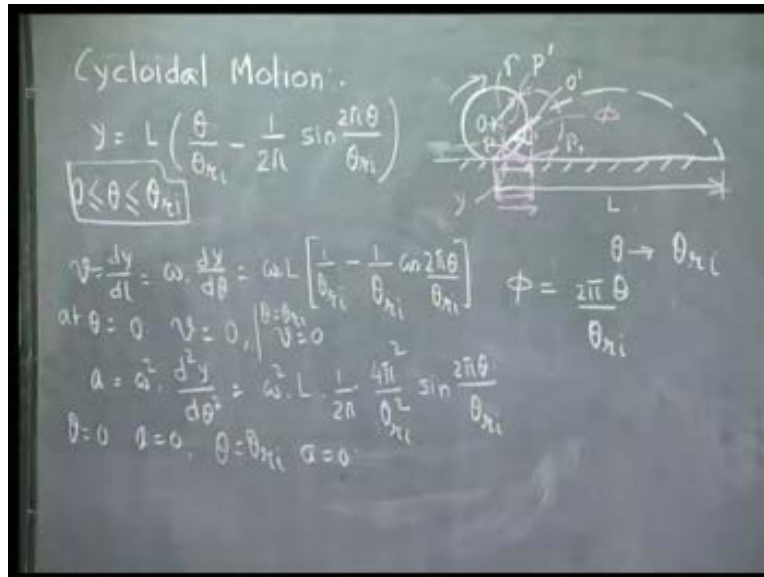 Cycloidal Motion:
y = L ( θ/θ_ri − 1/2π sin 2πθ/θ_ri )
0 ≤ θ ≤ θ_ri
v = dy/dt = ω. dy/dθ = ω L [ 1/θ_ri − 1/θ_ri cos 2πθ/θ_ri ]
at θ = 0 v = 0, θ=θ_ri v = 0
a = ω². d²y/dθ² = ω². L. 1/2π . 4π²/θ_ri² sin 2πθ/θ_ri
θ=0 a=0, θ=θ_ri a=0
r P' O'
O φ
P P₁
y L
θ → θ_ri
φ = 2π θ/θ_ri